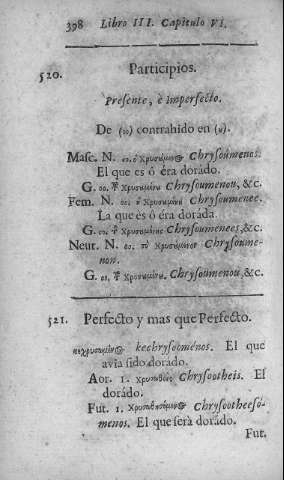 398 Libro III. Capitulo VI.
520. Participios.
Presente, è imperfecto.
De (οο) contrahido en (ȣ).
Masc. N. οο. ὁ Χρυσȣ́μενος Chrysoúmenos.
El que es ó éra dorádo.
G. οο. τȣ͂ χρυσȣμένȣ Chrysouménou, &c.
Fem. N. οο. ἡ χρυσȣμένη Chrysouménee.
La que es ó éra doráda.
G. οο. τῆς χρυσȣμένης Chrysouménees, &c.
Neut. N. οο. τὸ Χρυσȣ́μενον Chrysoúme-
non.
G. οο. τȣ͂ χρυσȣμένȣ. Chrysouménou, &c.
521. Perfecto y mas que Perfecto.
κεχρυσωμένος kechrysooménos. El que
avia sido dorado.
Aor. 1. χρυσωθείς Chrysootheis. El
dorádo.
Fut. 1. Χρυσωθησόμενος Chrysootheesó-
menos. El que será dorádo.
Fut.